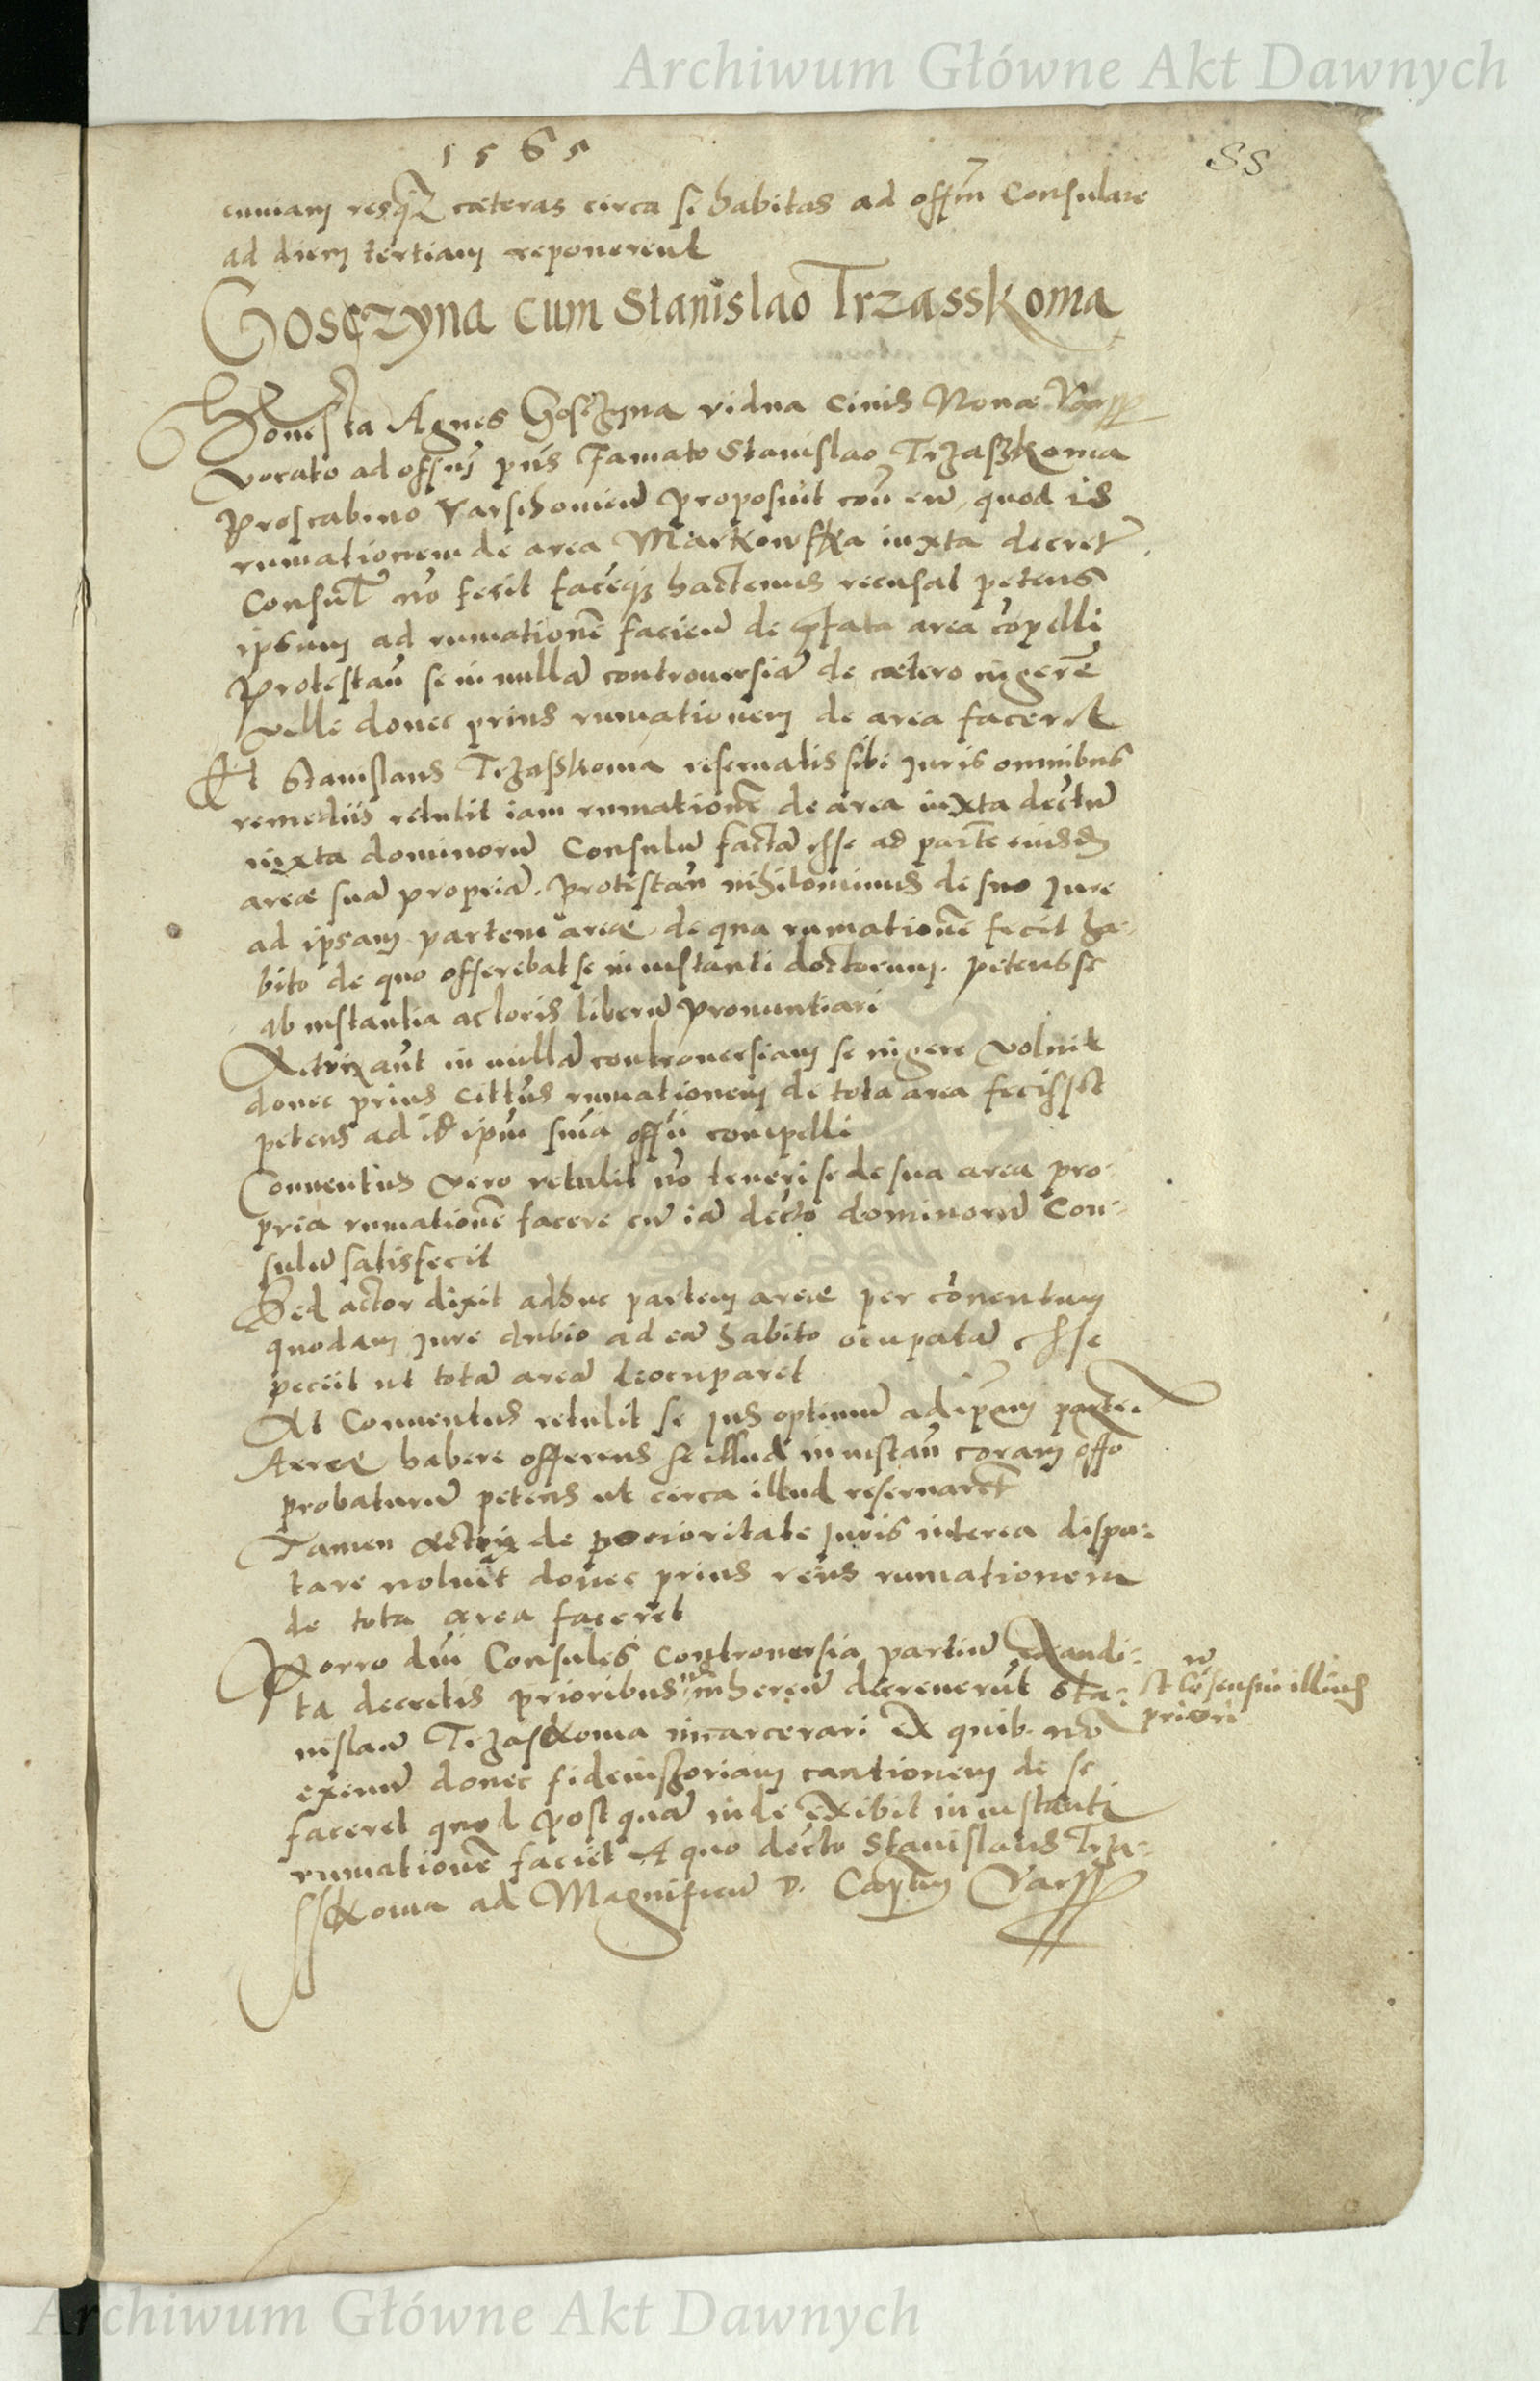 Archiwum Główne Akt Dawnych
1565
55
cuniam resq͛ cæteras circa se habitas ad offm̄ Consulare
ad diem tertiam reponerent
Gosczyna cum Stanislao Trzasskoma
Honesta Agnes Gosczyna vidua Civis Novæ Vars
Vocato ad offm̄ pn̄s Famato Stanislao Trzaskoma
Proscabino Varschovien̄ proposuit con̄ eū quod is
rumationem de area Markowska iuxta decret͂
Consul͂ nō fecit faceq͛ hactenus recusat petens
ipsum ad rumationē facien̄ de p͂fata area cōpelli
Protestan̄ se in nullā controversiā de cætero ingerē
velle donec prius rumationem de area faceret
Et Stanislaus Trzasskoma reservatis sibi iuris omnibus
remediis retulit iam rumationē de area iuxta decr̄tū
iuxta dominorū Consulū factā esse ad partē eiusdē
areæ suā propriā. Protestan̄ nihilominus de suo Jure
ad ipsam partem areæ de qua rumationē fecit ha-
bito de quo offerebat se in instanti docturum. petens se
ab instantia actoris liberū pronuntiari
Actrix aūt in nullā controversiam se ingere voluit
donec prius citt͂us rumationem de tota area fecisset
petens ad id ip̄m sn̄ia offii compelli
Conventus vero retulit nō teneri se de sua area pro-
pria rumationē facere cū iā decr̄to dominorū Con-
sulū satisfecit
Sed actor dixit adhuc partem areæ per cōventum
quodam Jure dubio ad eā habito ocupatā esse
peciit ut totā areā deocuparet
At Conventus retulit se Jus optimū ad ip̄am partē
Areæ habere offerens se illud in instan̄ coram offo
probaturū petens ut circa illud reservaret͂
Tamen Actrix de potioritate Juris interea dispu-
tare noluit donec prius reus rumationem
de tota area faceret
Porro dn̄i Consules controversia partiū Exaudi-
ta decretis prioribus inheren̄ decreverūt Sta-
et cōsensui illius
priori
nislaū Trzaskoma incarcerari Ex quib. nō
exeun̄ donec fideiussoriam cautionem de se
faceret quod postquā inde Exibit in instanti
rumationē faciet A quo decr̄to Stanislaus Trza-
sskoma ad Magnificū D. Cap͂tm̄ Vars
Archiwum Główne Akt Dawnych